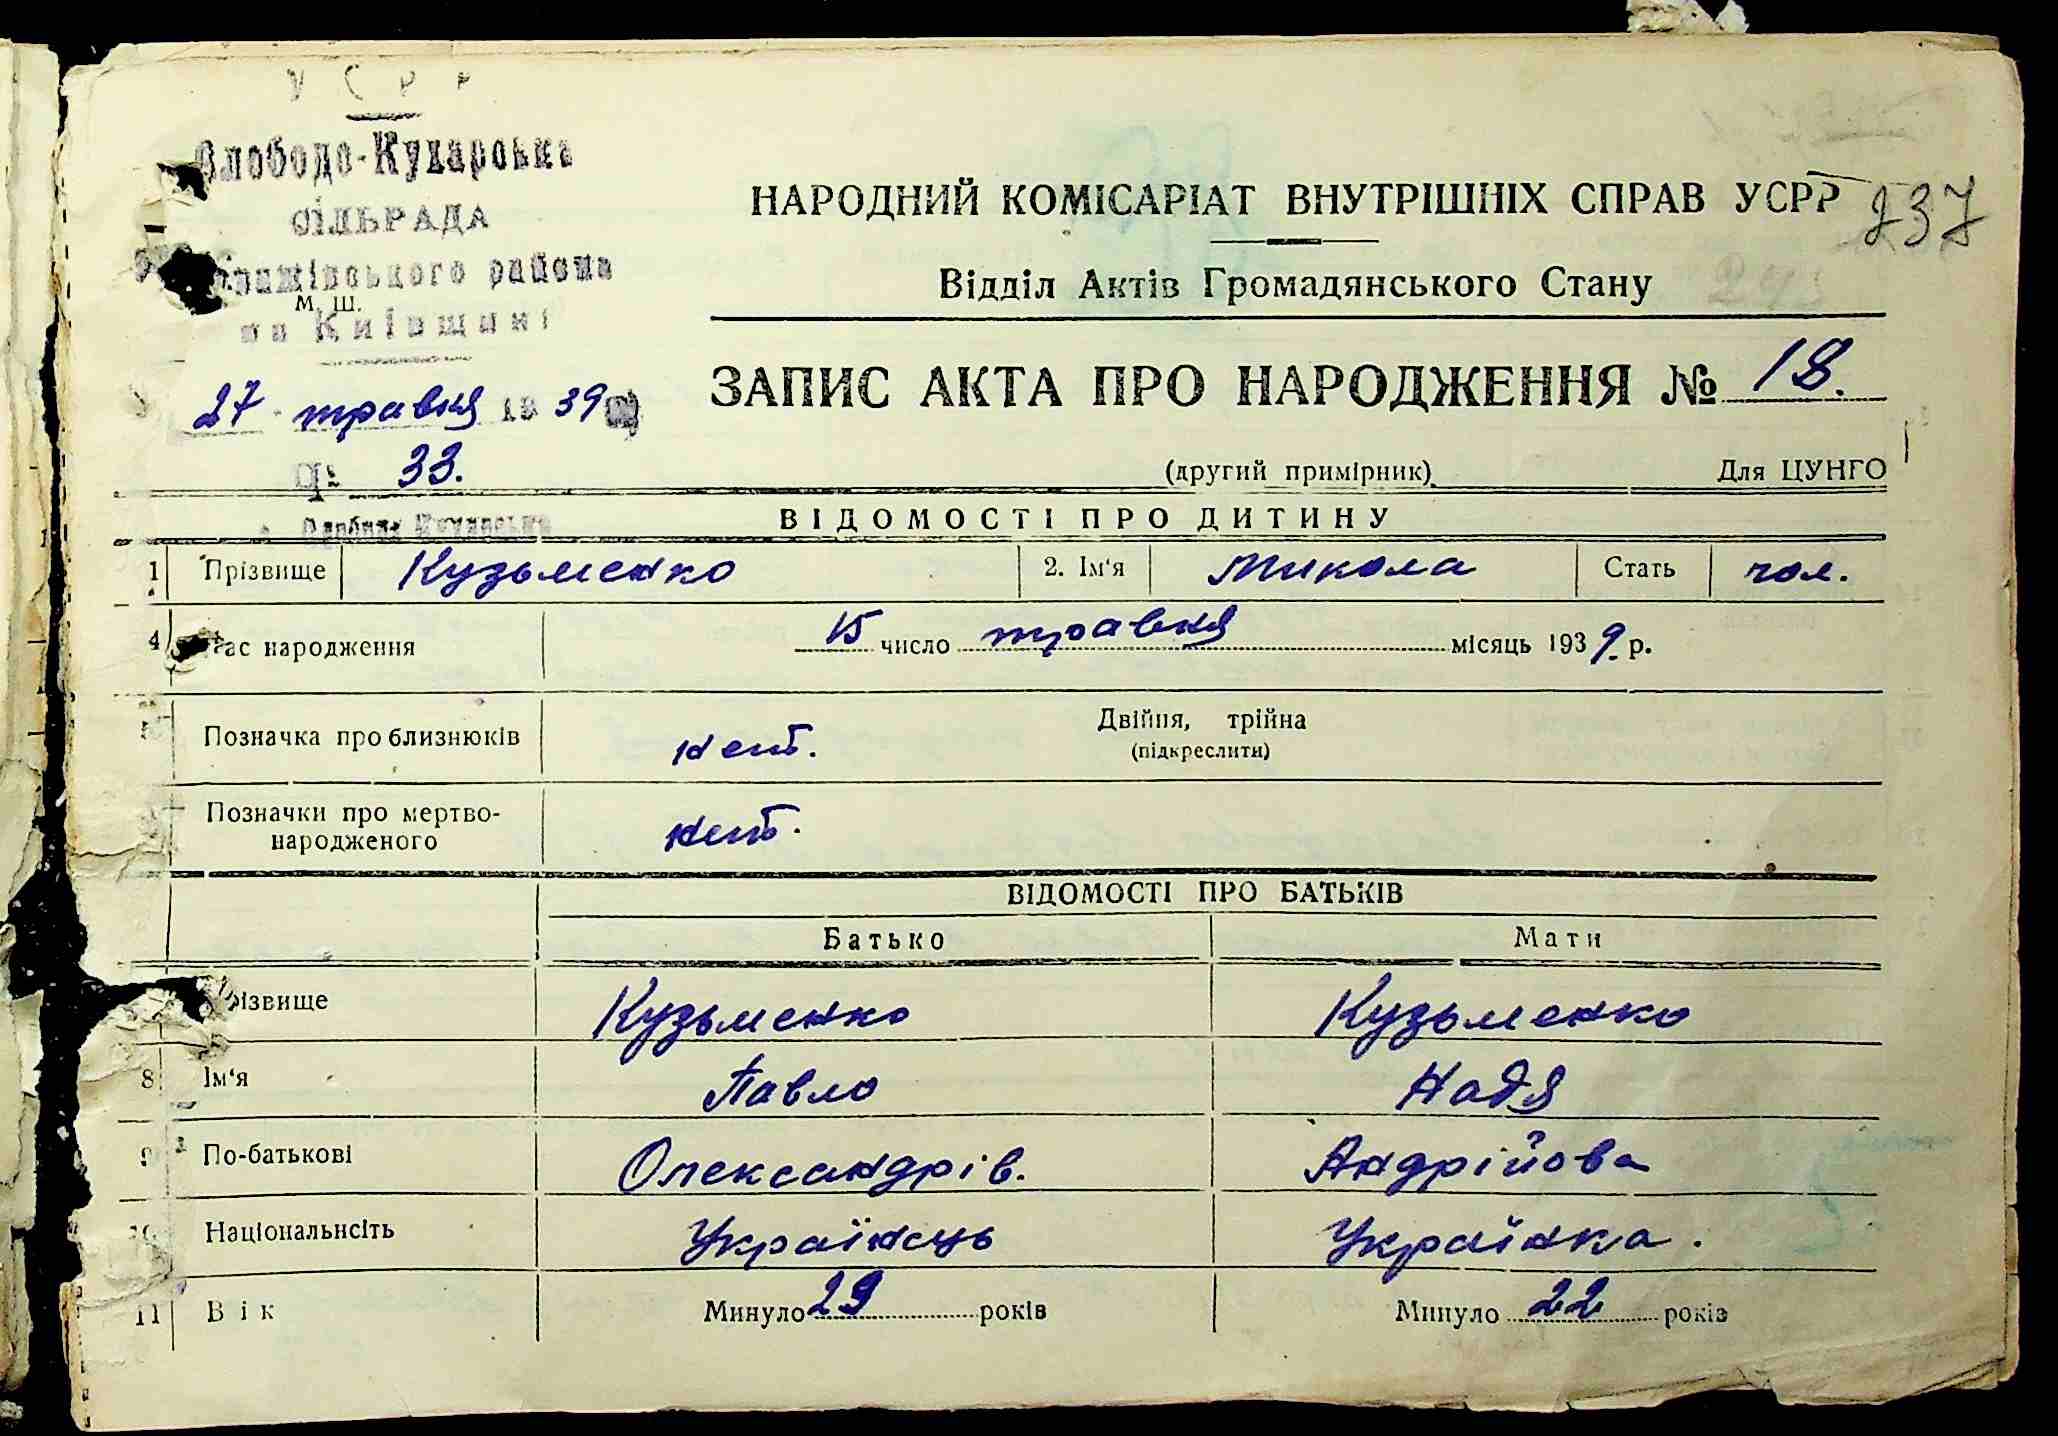 УСРР
Слободо-Кухарська
СІЛЬРАДА
району
на Київщині
М. Ш.
27 травня 19 39
Ч. 33.
Слобода Кухарська
НАРОДНИЙ КОМІСАРІАТ ВНУТРІШНІХ СПРАВ УСРР 237
Відділ Актів Громадянського Стану
ЗАПИС АКТА ПРО НАРОДЖЕННЯ № 18.
(другий примірник) Для ЦУНГО
ВІДОМОСТІ ПРО ДИТИНУ
1 Прізвище Кузьменко 2. Ім'я Микола Стать чол.
4 Час народження 15 число травня місяць 1939 р.
5 Позначка про близнюків нет. Двійня, трійна
(підкреслити)
Позначки про мертво-
народженого нет.
ВІДОМОСТІ ПРО БАТЬКІВ
Батько Мати
Прізвище Кузьменко Кузьменко
8 Ім'я Павло Надя
9 По-батькові Олександрів. Андрійова
10 Національнсіть Українець Українка.
11 Вік Минуло 29 років Минуло 22 років